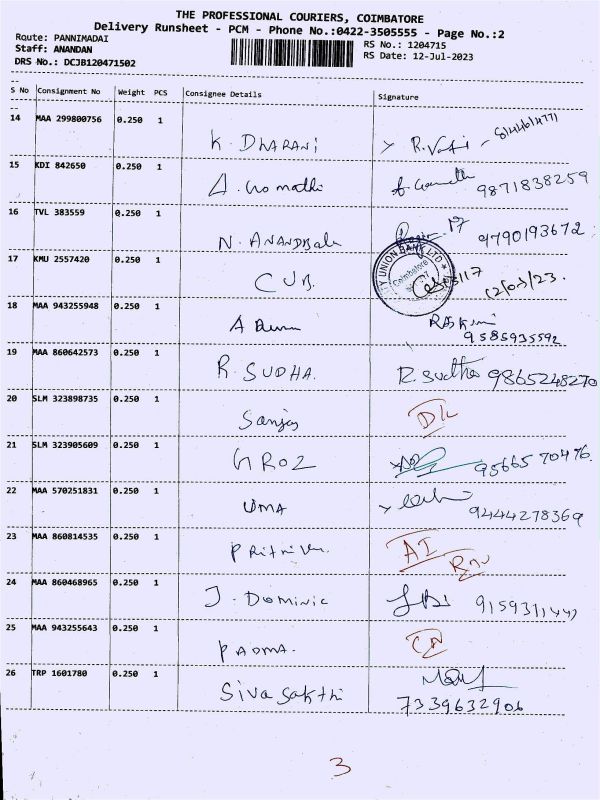 THE PROFESSIONAL COURIERS, COIMBATORE
Delivery Runsheet - PCM - Phone No.:0422-3505555 - Page No.:2
Route: PANNIMADAI
RS No.: 1204715
Staff: ANANDAN
RS Date: 12-Jul-2023
DRS No.: DCJB120471502
S No Consignment No Weight PCS Consignee Details Signature
14 MAA 299800756 0.250 1 K DHARANI
15 KDI 842650 0.250 1 A. Gomathi 9871838259
16 TVL 383559 0.250 1 N. ANANDBala 9790193672
17 KMU 2557420 0.250 1 CUB. CITY UNION BANK LTD Coimbatore
18 MAA 943255948 0.250 1 A 9585935592
19 MAA 860642573 0.250 1 R. SUDHA. R. Sudha 9865248270
20 SLM 323898735 0.250 1 Sanjay D/L
21 SLM 323905609 0.250 1 GROZ 95665 70476
22 MAA 570251831 0.250 1 UMA 9444278369
23 MAA 860814535 0.250 1 AI
24 MAA 860468965 0.250 1 J. Dominic
25 MAA 943255643 0.250 1 PADMA.
26 TRP 1601780 0.250 1 Siva Sakthi 7339632906
3